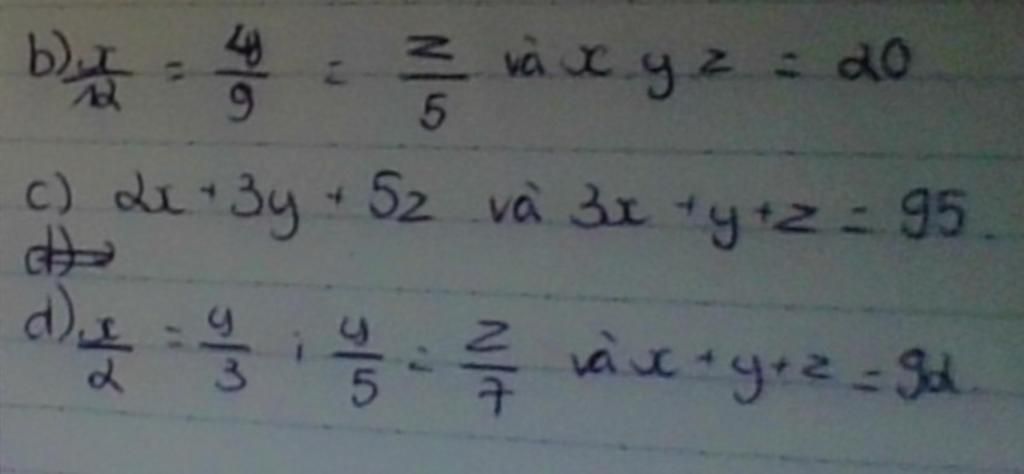 b) x/12 = y/9 = z/5 và x y z = 20
c) 2x + 3y + 5z và 3x + y + z = 95.
d)
d) x/2 = y/3 ; y/5 = z/7 và x + y + z = 92.